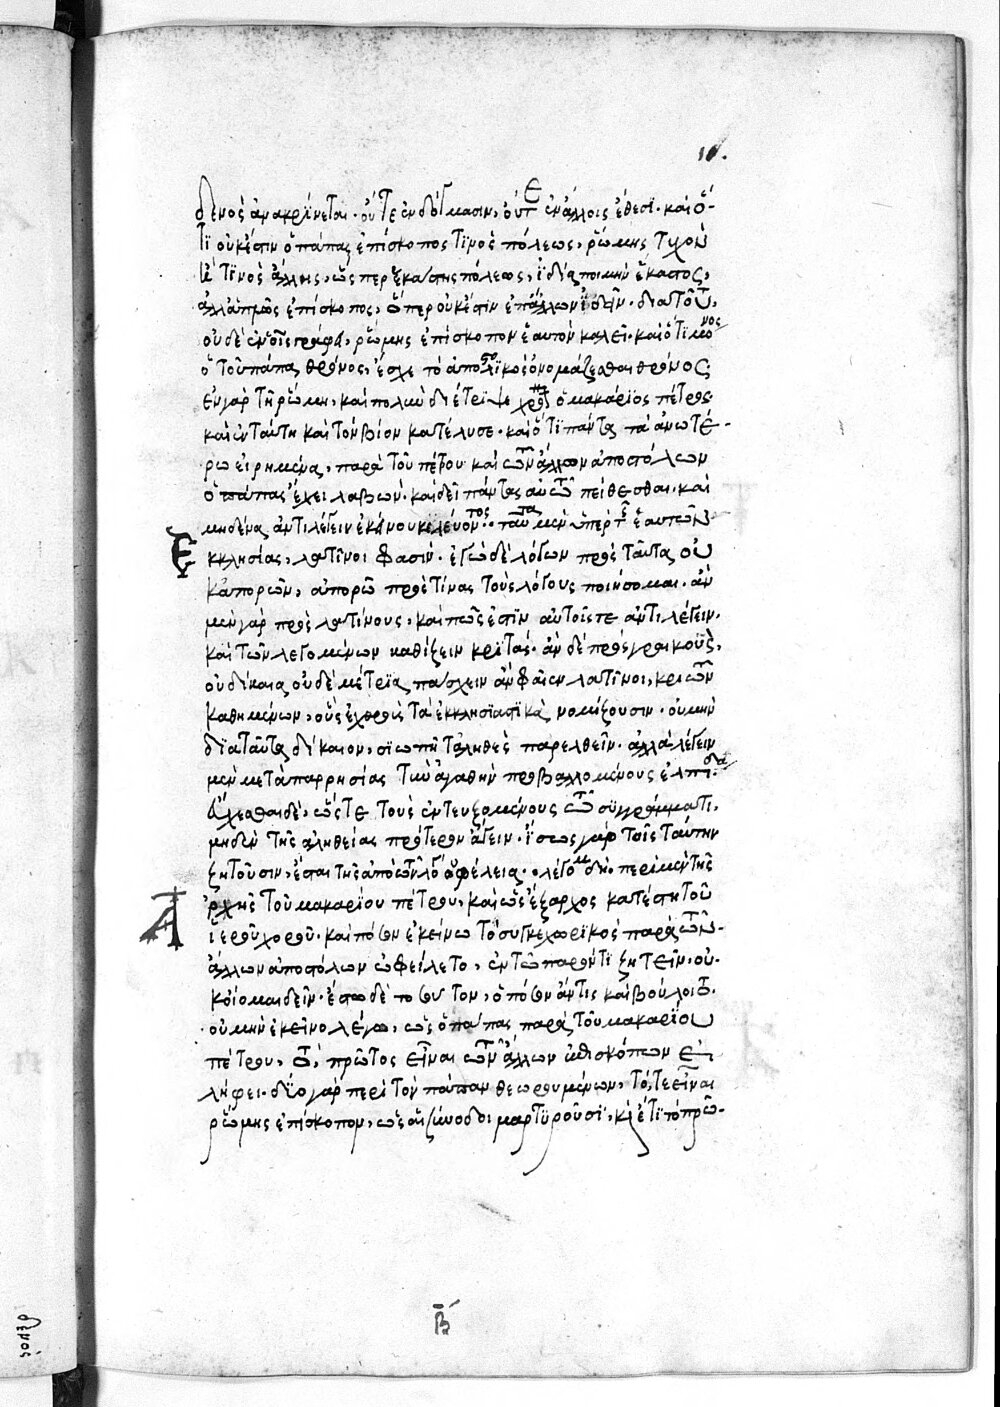 10.
δενὸς ἀνακρίνεται· οὔτε ἐν δόγμασιν, οὔτε ἐν ἄλλοις ἔθεσι· καὶ ὅ-
τι οὐκ ἔστιν ὁ πάπας ἐπίσκοπος τινὸς πόλεως, ῥώμης τυχὸν
ἢ τινὸς ἄλλης, ὥσπερ ἑκάστης πόλεως, ἰδίᾳ ποιμὴν ἕκαστος,
ἀλλ' ἁπλῶς ἐπίσκοπος, ὅπερ οὐκ ἔστιν ἐπ' ἄλλων ἰδεῖν· διὰ τοῦτο,
οὐδὲ ἐν οἷς γράφει, ῥώμης ἐπίσκοπον ἑαυτὸν καλεῖ· καὶ ὅτι μόνος
ὁ τοῦ πάπα θρόνος, ἔσχε τὸ ἀποστολικὸς ὀνομάζεσθαι θρόνος·
ἐν γὰρ τῇ ῥώμῃ, καὶ πολὺ διέτριψε χρόνον ὁ μακάριος πέτρος
καὶ ἐν ταύτῃ καὶ τὸν βίον κατέλυσε· καὶ ὅτι πάντα τὰ ἀνωτέ-
ρω εἰρημένα, παρὰ τοῦ πέτρου καὶ τῶν ἄλλων ἀποστόλων
ὁ πάπας ἔχει λαβών· καὶ δεῖ πάντας αὐτῷ πείθεσθαι· καὶ
μηδένα ἀντιλέγειν ἐκείνου κελεύοντος· ταῦτα μὲν ὑπὲρ τῆς ἑαυτῶν
ἐκκλησίας, λατῖνοι φασίν· ἐγὼ δὲ λόγων πρὸς ταῦτα οὐ
κἀπορῶν, ἀπορῶ πρὸς τίνας τοὺς λόγους ποιήσομαι· ἂν
μὲν γὰρ πρὸς λατίνους, καὶ πῶς ἐστὶν αὐτοῖς τε ἀντιλέγειν.
καὶ τῶν λεγομένων καθίζειν κριτάς· ἂν δὲ πρὸς γραικοὺς,
οὐ δίκαια οὐδὲ μέτρια πάσχειν ἂν φαῖεν λατῖνοι, κριτῶν
καθημένων, οὓς ἐχθροὺς τὰ ἐκκλησιαστικὰ νομίζουσιν· οὐ μὴν
διὰ ταῦτα δίκαιον, σιωπῇ τἀληθὲς παρελθεῖν· ἀλλὰ λέγειν
μὲν μετὰ παρρησίας τὴν ἀγαθὴν προβαλλομένους ἐλπίδα·
εὔχεσθαι δὲ, ὥστε τοὺς ἐντευξομένους τῷ συγγράμματι,
μηδὲν τῆς ἀληθείας πρότερον ἄγειν· ἴσως γὰρ τοῖς ταύτην
ζητοῦσιν, ἔσται τῆς ἀπὸ τῶν λόγων ὠφέλεια· λέγομεν δὴ· περὶ μὲν τῆς
ἀρχῆς τοῦ μακαρίου πέτρου, καὶ ὡς ἔξαρχος κατέστη τοῦ
ἱεροῦ χοροῦ· καὶ πόθεν ἐκείνῳ τὸ συγκεχωρικὸς παρὰ τῶν
ἄλλων ἀποστόλων ὠφείλετο, ἐν τῷ παρόντι ζητεῖν, οὐ-
κ οἴομαι δεῖν· ἔστω δὲ τοῦτον, ὁπόθεν ἄν τις καὶ βούλοιτο.
οὐ μὴν ἐκεῖνο λέγω, ὡς ὁ πάπας παρὰ τοῦ μακαρίου
πέτρου, τὸ, πρῶτος εἶναι τῶν ἄλλων ἐπισκόπων εἰ-
λήφει· δύο γὰρ περὶ τὸν πάπαν θεωρουμένων, τό, τε εἶναι
ῥώμης ἐπίσκοπον, ὡς αἱ σύνοδοι μαρτυροῦσι, καὶ ἔτι τὸ πρῶ-
β